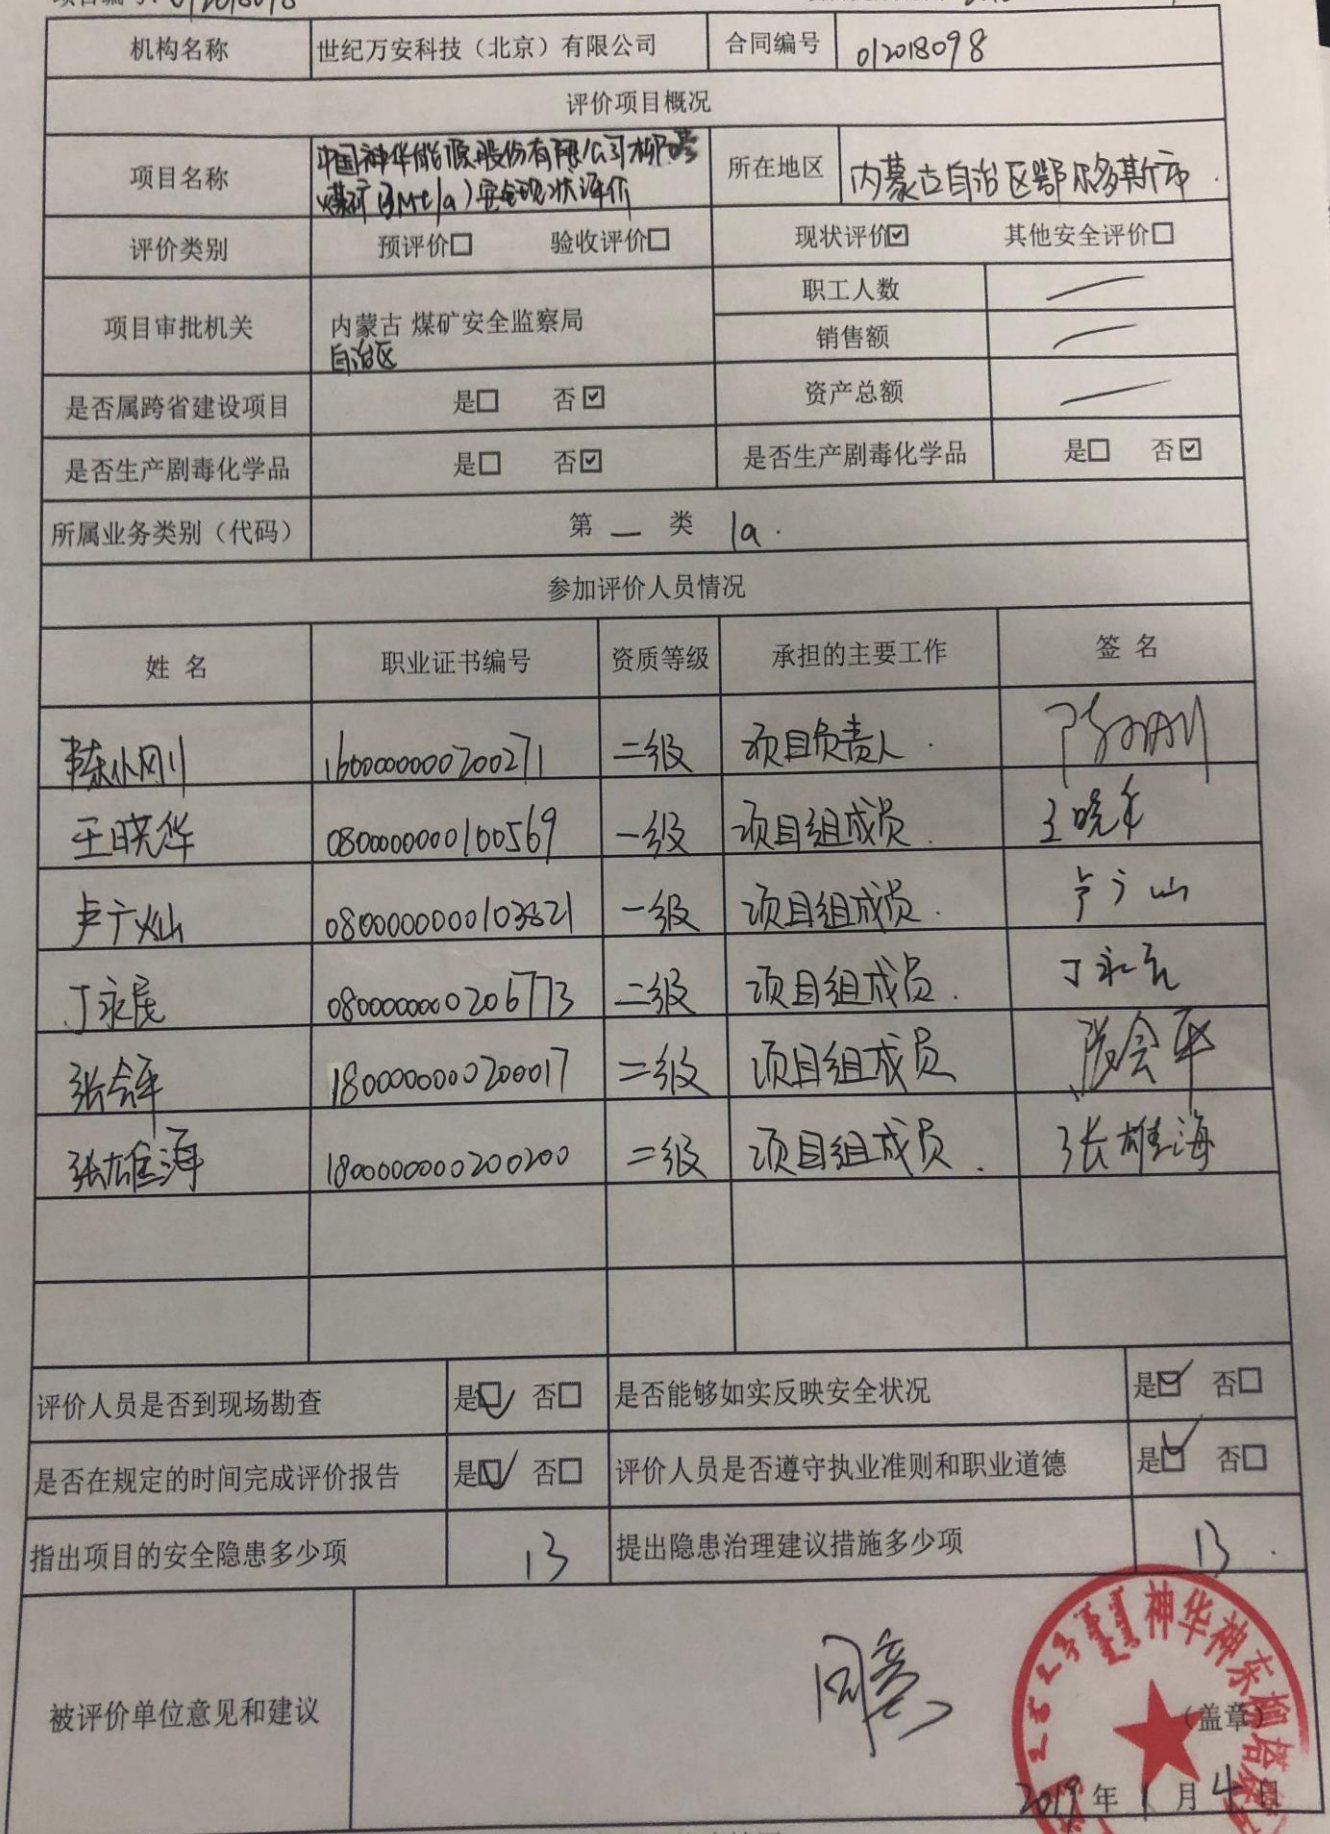 012018098
机构名称 世纪万安科技（北京）有限公司 合同编号 012018098
评价项目概况
项目名称 中国神华能源股份有限公司柳塔
煤矿(3Mt/a)安全现状评价
所在地区 内蒙古自治区鄂尔多斯市
评价类别 预评价□ 验收评价□ 现状评价☑ 其他安全评价□
项目审批机关 内蒙古 煤矿安全监察局
自治区
职工人数 —
销售额 —
是否属跨省建设项目 是□ 否☑ 资产总额 —
是否生产剧毒化学品 是□ 否☑ 是否生产剧毒化学品 是□ 否☑
所属业务类别（代码） 第 一 类 1a.
参加评价人员情况
姓 名 职业证书编号 资质等级 承担的主要工作 签 名
1600000000200271 二级 项目负责人
王晓华 0800000000100569 一级 项目组成员 王晓华
卢广灿 0800000000103821 一级 项目组成员 卢广灿
丁永民 0800000000206773 二级 项目组成员 丁永民
张会平 1800000000200017 二级 项目组成员 张会平
张雄海 1800000000200200 二级 项目组成员 张雄海
评价人员是否到现场勘查 是☑ 否□ 是否能够如实反映安全状况 是☑ 否□
是否在规定的时间完成评价报告 是☑ 否□ 评价人员是否遵守执业准则和职业道德 是☑ 否□
指出项目的安全隐患多少项 13 提出隐患治理建议措施多少项 13
被评价单位意见和建议 同意
神华神东柳塔煤矿
（盖章）
2019年1月4日